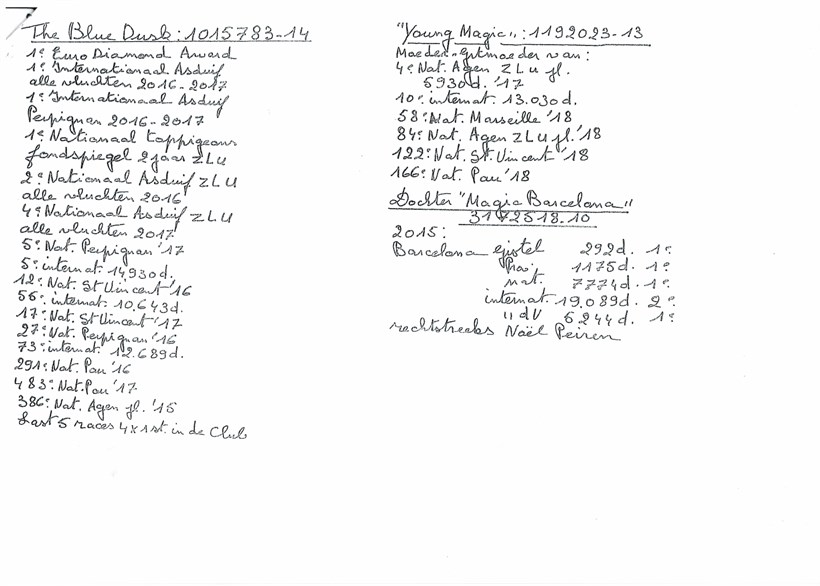 The Blue Dusk: 1015783-14
1e Euro Diamond Award
1e Internationaal Asduif
alle vluchten 2016-2017
1e Internationaal Asduif
Perpignan 2016-2017
1e Nationaal toppigeons
fondspiegel 2 jaar ZLU
2e Nationaal Asduif ZLU
alle vluchten 2016
4e Nationaal Asduif ZLU
alle vluchten 2017
5e Nat. Perpignan '17
5e internat. 14,930d.
12e Nat. St Vincent '16
56e internat. 10.643d.
17e Nat. St Vincent '17
27e Nat. Perpignan '16
73e internat. 12.689d.
291e Nat. Pau '16
483e Nat. Pau '17
386e Nat. Agen jl. '15
Last 5 races 4x1st. in de Club
"Young Magic": 1192023-13
Moeder-Grtmoeder van:
4e Nat. Agen ZLU jl.
5930d. '17
10e internat. 13.030d.
58e Nat. Marseille '18
84e Nat. Agen ZLU jl. '18
122e Nat. St. Vincent '18
166e Nat. Pau '18
Dochter "Magic Barcelona"
3172518.10
2015:
Barcelona 292d. 1e
1175d. 1e
nat. 7774d. 1e
internat. 19.089d. 2e
" dV 5244d. 1e
rechtstreeks Noël Peiren